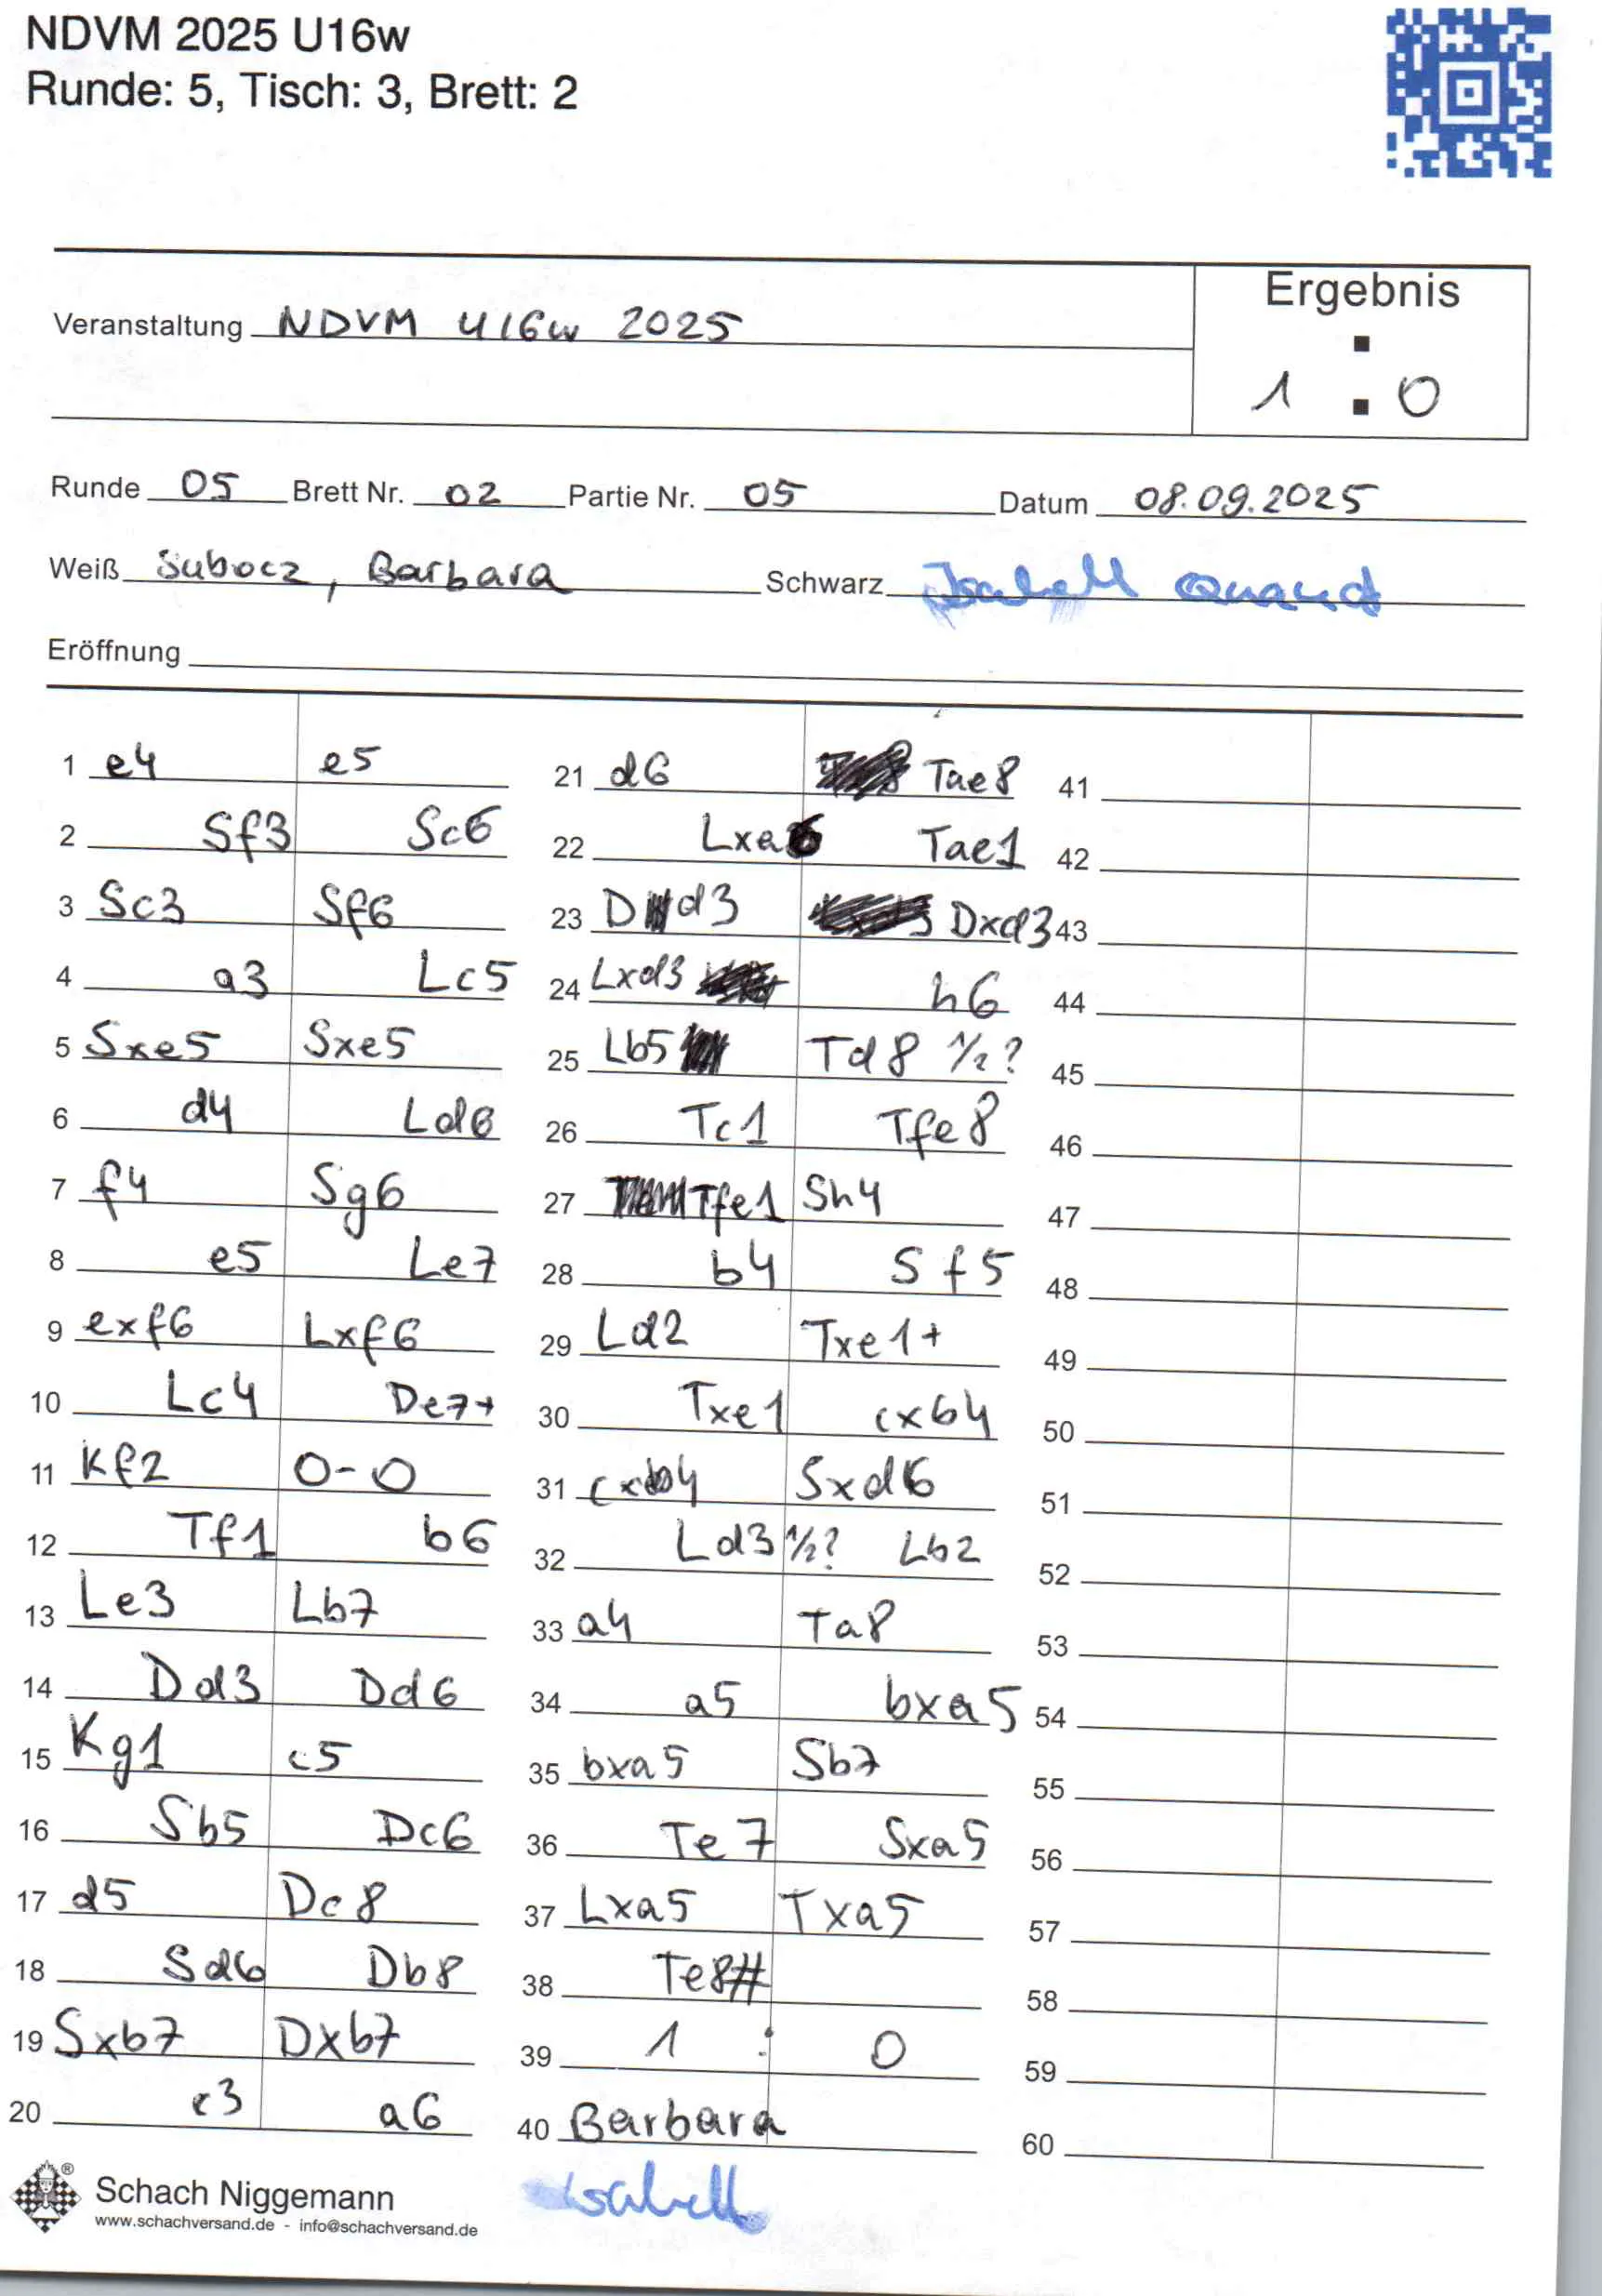 NDVM 2025 U16w
Runde: 5, Tisch: 3, Brett: 2
Ergebnis
Veranstaltung NDVM U16w 2025
1 : 0
Runde 05 Brett Nr. 02 Partie Nr. 05 Datum 08.09.2025
Weiß Subocz, Barbara Schwarz Isabell Quandt
Eröffnung
1 e4 e5
2 Sf3 Sc6
3 Sc3 Sf6
4 a3 Lc5
5 Sxe5 Sxe5
6 d4 Ld6
7 f4 Sg6
8 e5 Le7
9 exf6 Lxf6
10 Lc4 De7+
11 Kf2 0-0
12 Tf1 b6
13 Le3 Lb7
14 Dd3 Dd6
15 Kg1 c5
16 Sb5 Dc6
17 d5 Dc8
18 Sd6 Db8
19 Sxb7 Dxb7
20 c3 a6
21 d6 Tae8
22 Lxa6 Tae1
23 Dd3 Dxd3
24 Lxd3 h6
25 Lb5 Td8 1/2?
26 Tc1 Tfe8
27 Tfe1 Sh4
28 b4 Sf5
29 Ld2 Txe1+
30 Txe1 cxb4
31 cxb4 Sxd6
32 Ld3 1/2? Lb2
33 a4 Ta8
34 a5 bxa5
35 bxa5 Sb7
36 Te7 Sxa5
37 Lxa5 Txa5
38 Te8#
39 1 : 0
40 Barbara
Isabell
41
42
43
44
45
46
47
48
49
50
51
52
53
54
55
56
57
58
59
60
Schach Niggemann
www.schachversand.de - info@schachversand.de